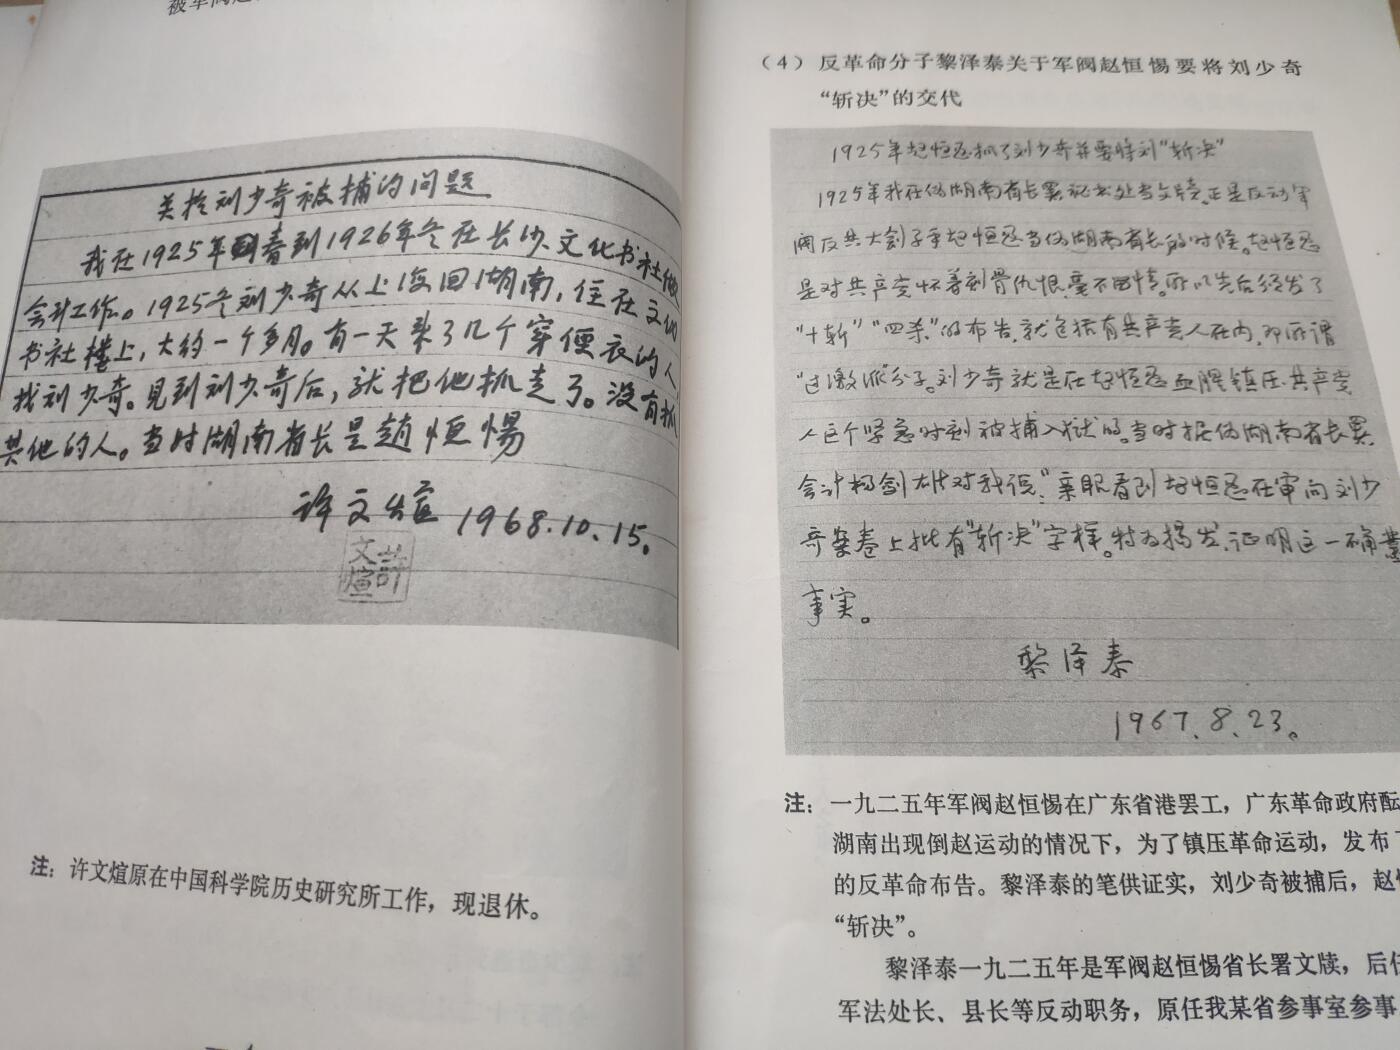 关于刘少奇被捕的问题
我在1925年春到1926年冬在长沙文化书社做
会计工作。1925冬刘少奇从上海回湖南，住在文化
书社楼上，大约一个多月。有一天来了几个穿便衣的人，
找刘少奇。见到刘少奇后，就把他抓走了。没有抓
其他的人。当时湖南省长是趙恒惕
许文煊 1968.10.15。
許文煊
注：许文煊原在中国科学院历史研究所工作，现退休。
（4）反革命分子黎泽泰关于军阀赵恒惕要将刘少奇
“斩决”的交代
1925年赵恒惕抓了刘少奇并要将刘“斩决”
1925年我在伪湖南省长署秘书处当文牍。正是反动军
阀反共大刽子手赵恒惕当伪湖南省长的时候。赵恒惕
是对共产党怀着刻骨仇恨，毫不留情。所以先后颁发了
“十斩”“四杀”的布告，就包括有共产党人在内，即所谓
“过激派”分子。刘少奇就是在赵恒惕血腥镇压共产党
人这个紧急时刻被捕入狱的。当时据伪湖南省长署
会计杨剑雄对我说：“亲眼看到赵恒惕在审问刘少
奇案卷上批有“斩决”字样。特为揭发，证明这一不确凿
事实。
黎泽泰
1967.8.23。
注：一九二五年军阀赵恒惕在广东省港罢工，广东革命政府酝
湖南出现倒赵运动的情况下，为了镇压革命运动，发布了
的反革命布告。黎泽泰的笔供证实，刘少奇被捕后，赵恒
“斩决”。
黎泽泰一九二五年是军阀赵恒惕省长署文牍，后任
军法处长、县长等反动职务，原任我某省参事室参事